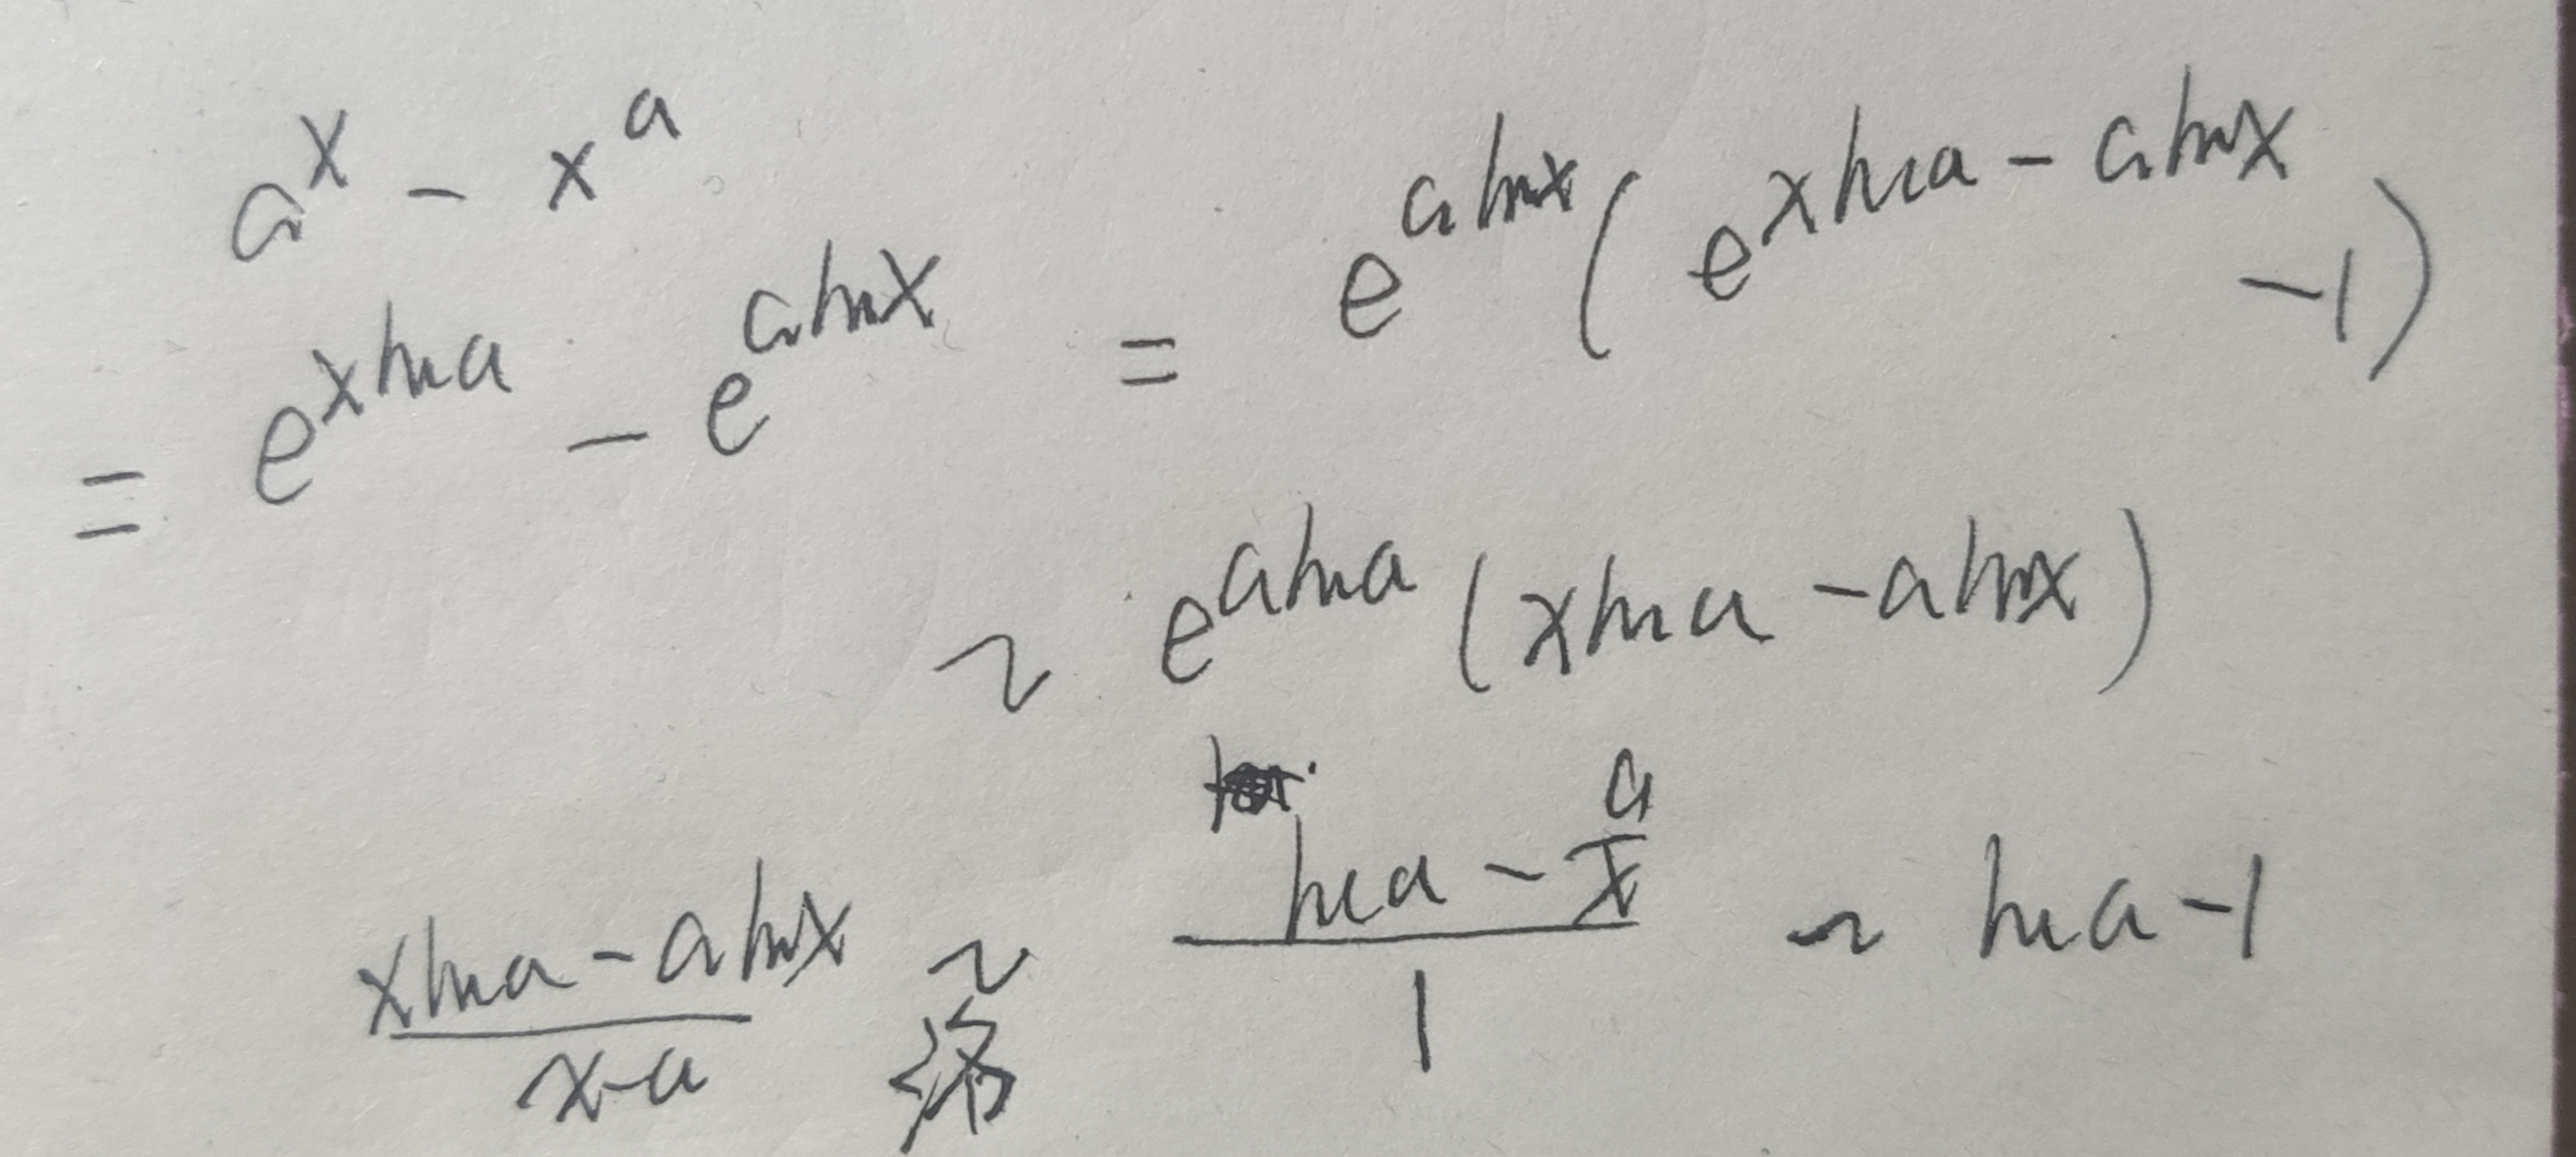 a^x - x^a
= e^{x ln a} - e^{a ln x} = e^{a ln x} ( e^{x ln a - a ln x} - 1 )
~ e^{a ln a} ( x ln a - a ln x )
\frac{x ln a - a ln x}{x - a} ~ \frac{ln a - \frac{a}{x}}{1} ~ ln a - 1
洛